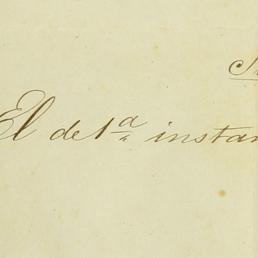 El de 1ª instan